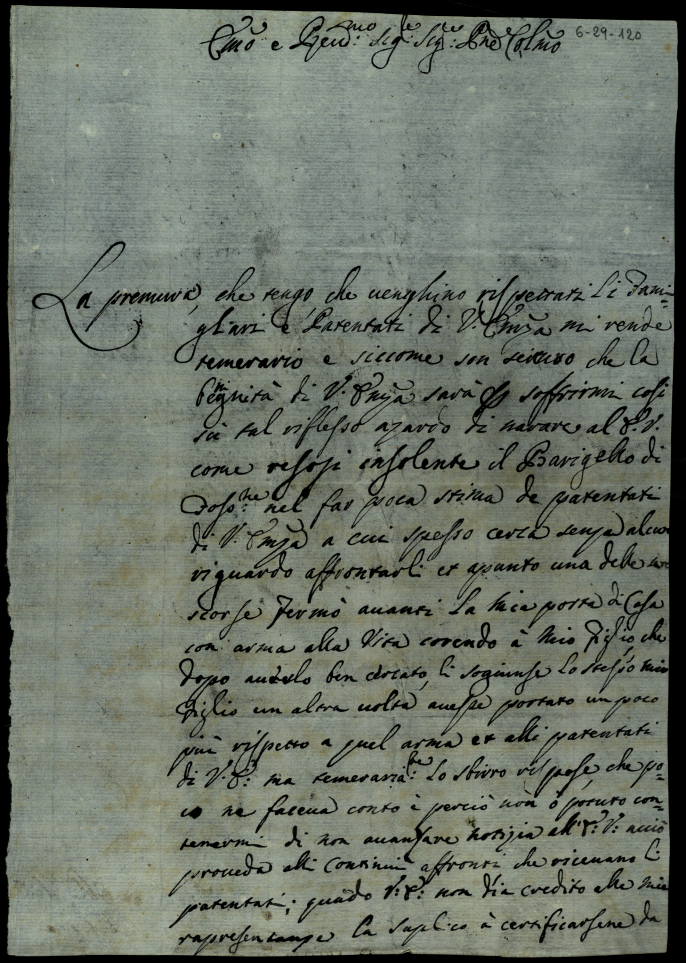 Emo e Reud:mo Sigr: Sigr: Pne Colmo 6-29-120
La premura, che tengo che uenghino rispettati li Fami-
gliari e Patentati di V: Emza mi rende
temerario e siccome son sicuro che la
begnità di V: Emza sarà soffrirmi così
sù tal riflesso azardo di narare al E. V.
come resosi insolente il Barigello di
nel far poca stima de patentati
di V: Emza a cui spesso cerca senza alcun
riguardo affrontarli et apunto una delle
scorse fermò auanti la mia porta di Casa
con arma alla Vita corendo à mio Figlio, che
dopo auerlo ben cercato, li sogiunse lo stesso mio
Figlio un altra uolta auesse portato un poco
più rispetto a quel arma et alli patentati
di V: E: ma temerariate: lo sbirro rispose che po-
co ne faceua conto è perciò non ò potuto con-
tenermi di non auansare notizia all'E: V: acciò
proueda alli continui affronti che riceuano li
patentati; quado V: E: non dia credito alle mie
rapresentanze la suplico à certificarsene da